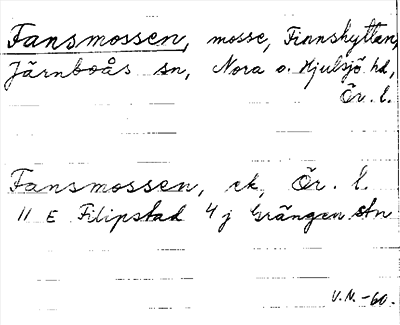 Fansmossen, mosse, Finnshyttan,
Järnboås sn, Nora o. Hjulsjö hd,
Ör. l.
Fansmossen, ek, Ör. l.
11 E Filipstad 4 j Grängen stn
V.N. -60.